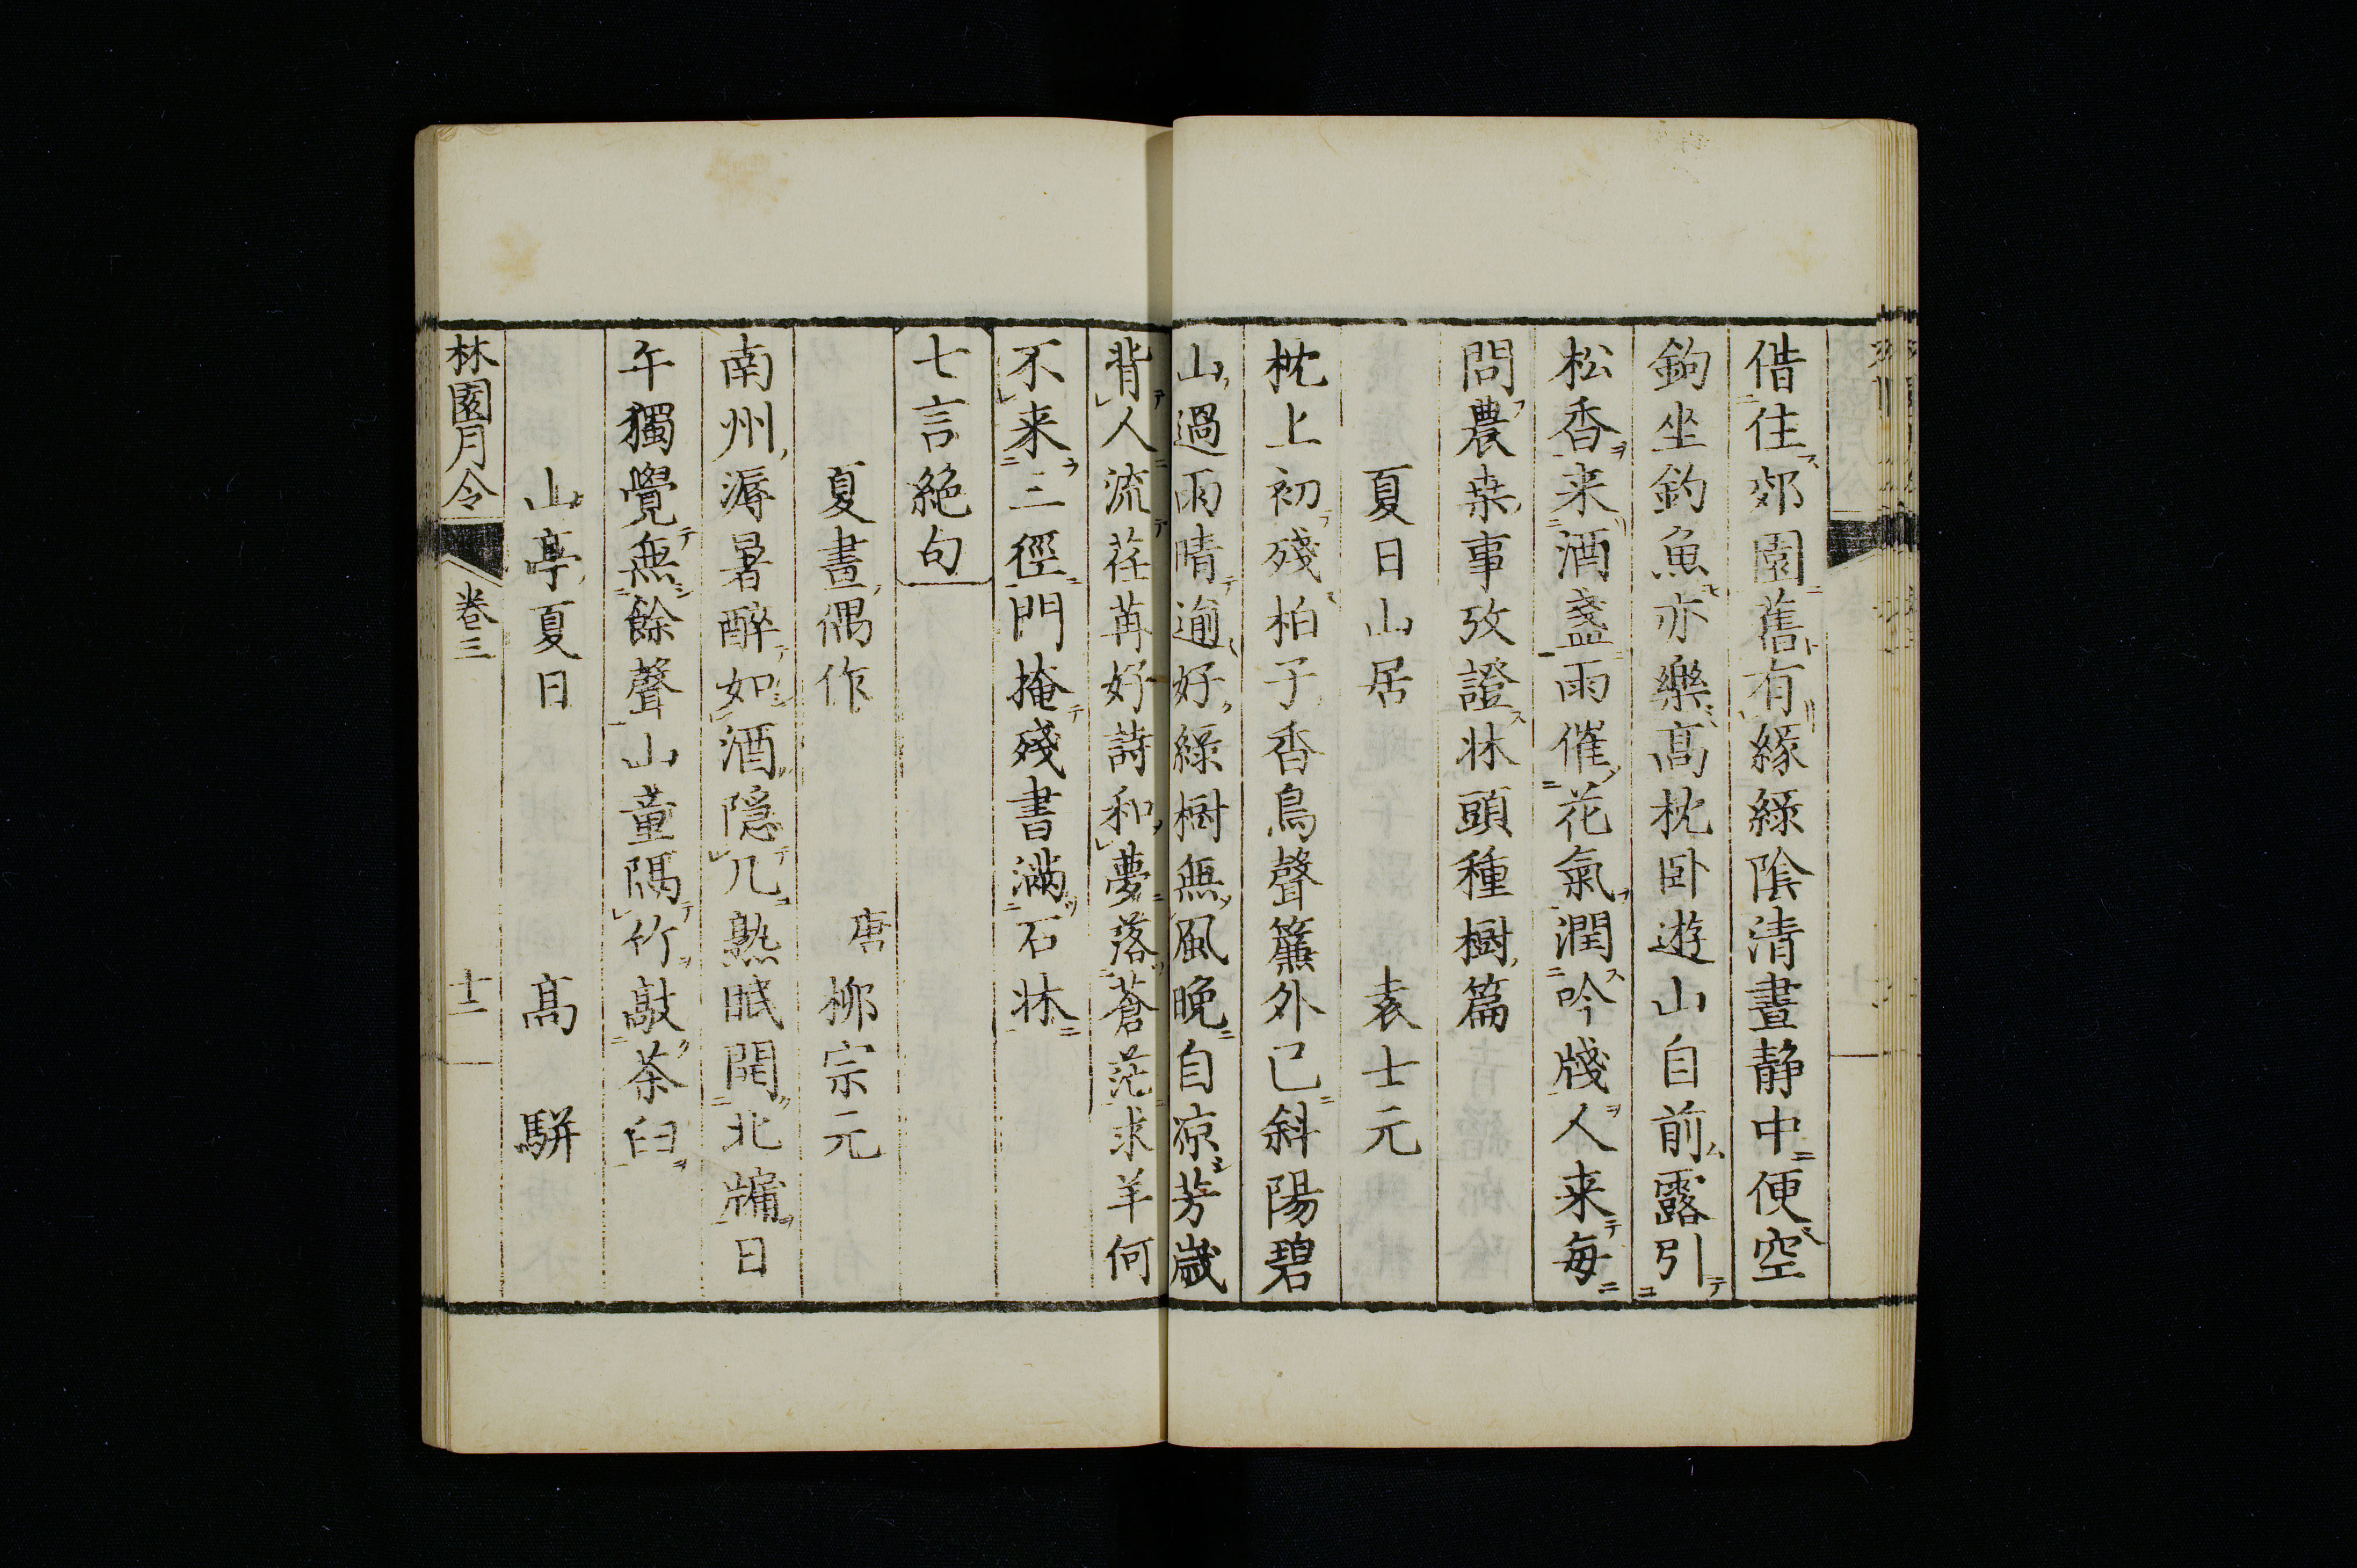 借住郊園舊有縁緑陰清晝静中便空
鉤坐釣魚亦樂髙枕卧遊山自前露引
松香来酒盞雨催花氣潤吟牋人来毎
問農桒事攷證牀頭種樹篇
夏日山居 袁士元
枕上初殘柏子香鳥聲簾外已斜陽碧
山過雨晴逾好緑樹無風晩自凉芳歳
背人流荏苒好詩和夢落蒼茫求羊何
不来三徑門掩殘書滿石牀
七言絶句
夏晝偶作 唐 柳宗元
南州溽暑醉如酒隠几熟眠開北牖日
午獨覺無餘聲山童隔竹敲茶臼
山亭夏日 髙駢
林園月令 巻三 十二